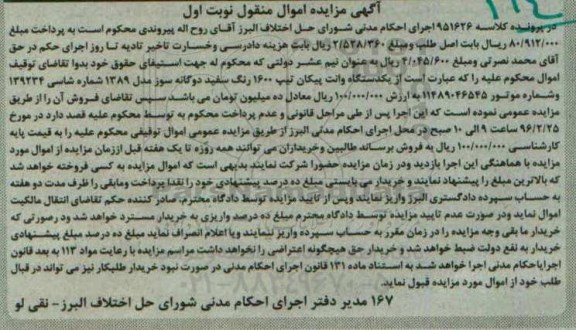 ۱۱۴
آگهی مزایده اموال منقول نوبت اول
در پرونده کلاسه ۹۵۱۶۲۶ اجرای احکام مدنی شورای حل اختلاف البرز آقای روح اله پیروندی محکوم است به پرداخت مبلغ
۸۰/۹۱۲/۰۰۰ ریال بابت اصل طلب ومبلغ ۲/۵۳۸/۳۶۰ ریال بابت هزینه دادرسی وخسارت تاخیر تادیه تا روز اجرای حکم در حق
آقای محمد نصرتی ومبلغ ۴/۰۴۵/۶۰۰ ریال به عنوان نیم عشر دولتی که محکوم له جهت استیفای حقوق خود بدوا تقاضای توقیف
اموال محکوم علیه را که عبارت است از یکدستگاه وانت پیکان تیپ ۱۶۰۰ رنگ سفید دوگانه سوز مدل ۱۳۸۹ شماره شاسی ۱۳۹۲۳۴
وشماره موتور ۱۱۴۸۹۰۴۶۵۴۵ به ارزش ۱۰۰/۰۰۰/۰۰۰ ریال معادل ده میلیون تومان می باشد سپس تقاضای فروش آن را از طریق
مزایده عمومی نموده است که این اجرا پس از طی مراحل قانونی و عدم پرداخت محکوم به توسط محکوم علیه قصد دارد در مورخ
۹۶/۲/۲۵ ساعت ۹ الی ۱۰ صبح در محل اجرای احکام مدنی البرز از طریق مزایده عمومی اموال توقیفی محکوم علیه را به قیمت پایه
کارشناسی ۱۰۰/۰۰۰/۰۰۰ ریال به فروش برساند طالبین وخریداران می توانند همه روزه تا یک هفته قبل اززمان مزایده از اموال مورد
مزایده با هماهنگی این اجرا بازدید ودر زمان مزایده حضورا شرکت نمایند بدیهی است که اموال مزایده به کسی فروخته خواهد شد
که بالاترین مبلغ را پیشنهاد نمایند و خریدار می بایستی مبلغ ده درصد پیشنهادی خود را نقدا پرداخت ومابقی را ظرف مدت دو هفته
به حساب سپرده دادگستری البرز واریز نمایند وپس از تایید مزایده توسط دادگاه محترم، صادر کننده حکم تقاضای انتقال مالکیت
اموال نماید ودر صورت عدم تایید مزایده توسط دادگاه محترم مبلغ ده درصد واریزی به خریدار مسترد خواهد شد ود رصورتی که
خریدار ما بقی وجه مزایده را در زمان مقرر به حساب سپرده واریز ننمایند ویا اعلام انصراف نماید مبلغ ده درصد مبلغ پیشنهادی
خریدار به نفع دولت ضبط خواهد شد و خریدار حق هیچگونه اعتراضی را نخواهد داشت مراسم مزایده با رعایت مواد ۱۱۳ به بعد قانون
اجرایاحکام مدنی اجرا خواهد شد به استناد ماده ۱۳۱ قانون اجرای احکام مدنی در صورت نبود خریدار طلبکار نیز می تواند در قبال
طلب خود از اموال مورد مزایده قبول نماید.
۱۶۷ مدیر دفتر اجرای احکام مدنی شورای حل اختلاف البرز – نقی لو